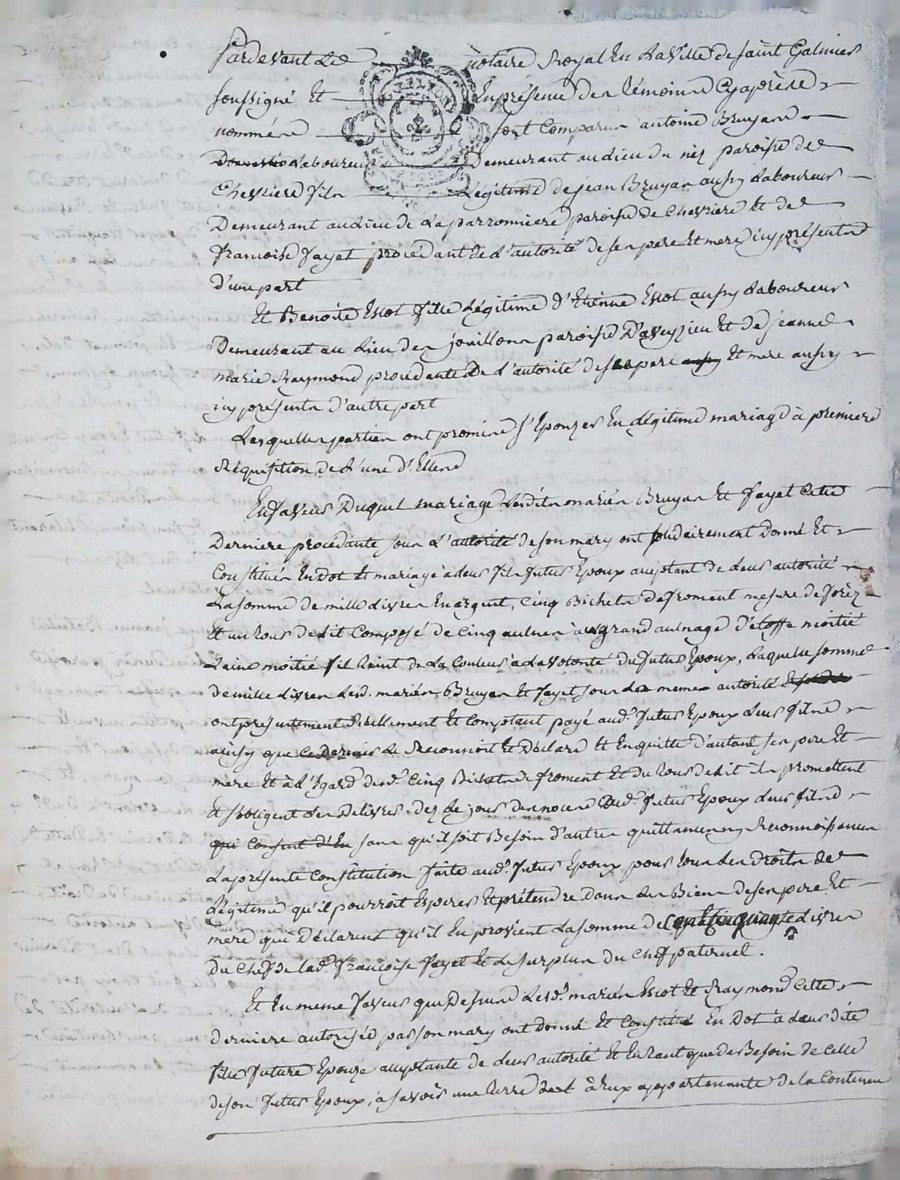 Pardevant Le notaire Royal En La Ville de saint Galmier
soussigné Et En présence des témoins Cyaprès
nommés sont Comparus antoine Bruyas
Laboureur Demeurant au Lieu du nez paroisse de
Chevriere fils Légitime de jean Bruyas aussy Laboureur
Demeurant au Lieu de Laparronniere paroisse de Chevriere Et de
francoise fayet procédant de L'autorité de ses pere Et mere icy présents
d'une part
Et Benoite Escot fille Légitime d'Etienne Escot aussy Laboureur
Demeurant au Lieu des jouillons paroisse D'aveyzieu Et de jeanne
marie Raymond procédante de L'autorité de ses pere Et mere aussy
icy présents d'autre part
Lesquelles parties ont promis de s'Epouzer En Légitime mariage à premiere
Réquisition de L'une d'Elles
En faveur Duquel mariage Lesdits mariés Bruyas Et fayet Cette
Derniere procédante sous L'autorité de son mary ont solidairement Donné Et
Constitué En Dot Et mariage à Leur fils futur Epoux acceptant de Leur autorité
La somme de mille Livres En argent, Cinq Bichets de froment mesure de forèz
Et un tour de Lit Composé de Cinq aulnes au grand aulnage d'étoffe moitié
Laine moitié fil teint de La Couleur à La volonté du futur Epoux, Laquelle somme
de mille Livres Lesd. mariés Bruyas Et fayet sous La meme autorité
ont présentement Réellement Et Comptant payé aud. futur Epoux Leur fils
ainsy que Ce dernier Le Reconnoit Et Déclare Et En quitte d'autant ses pere Et
mere Et à L'Egard desd. Cinq Bichets de froment Et du tour de Lit ils promettent
Et s'obligent de Délivrer dez Le jour des noces aud. futur Epoux Leur fils
qui Consent d'En sans qu'il soit Besoin d'autres quittances ny Reconnoissances
La présente Constitution faite aud. futur Epoux pour tous Les Droits de
Légitime qu'il pourroit Esperer Et prétendre Dans Les Biens de ses pere Et
mere qui Déclarent qu'il En provient La somme de Cent Cinquante Livres
du Chef de Lad. francoise fayet Et Le surplus du Chef paternel.
Et En meme faveur que Dessus Lesd. mariés Escot Et Raymond Cette
derniere autorisée par son mary ont donné Et Constitué En Dot à Leur dite
fille future Epouze acceptante de Leur autorité Et En tant que de Besoin de Celle
de son futur Epoux, a savoir une terre à Eux appartenante de La Contenue